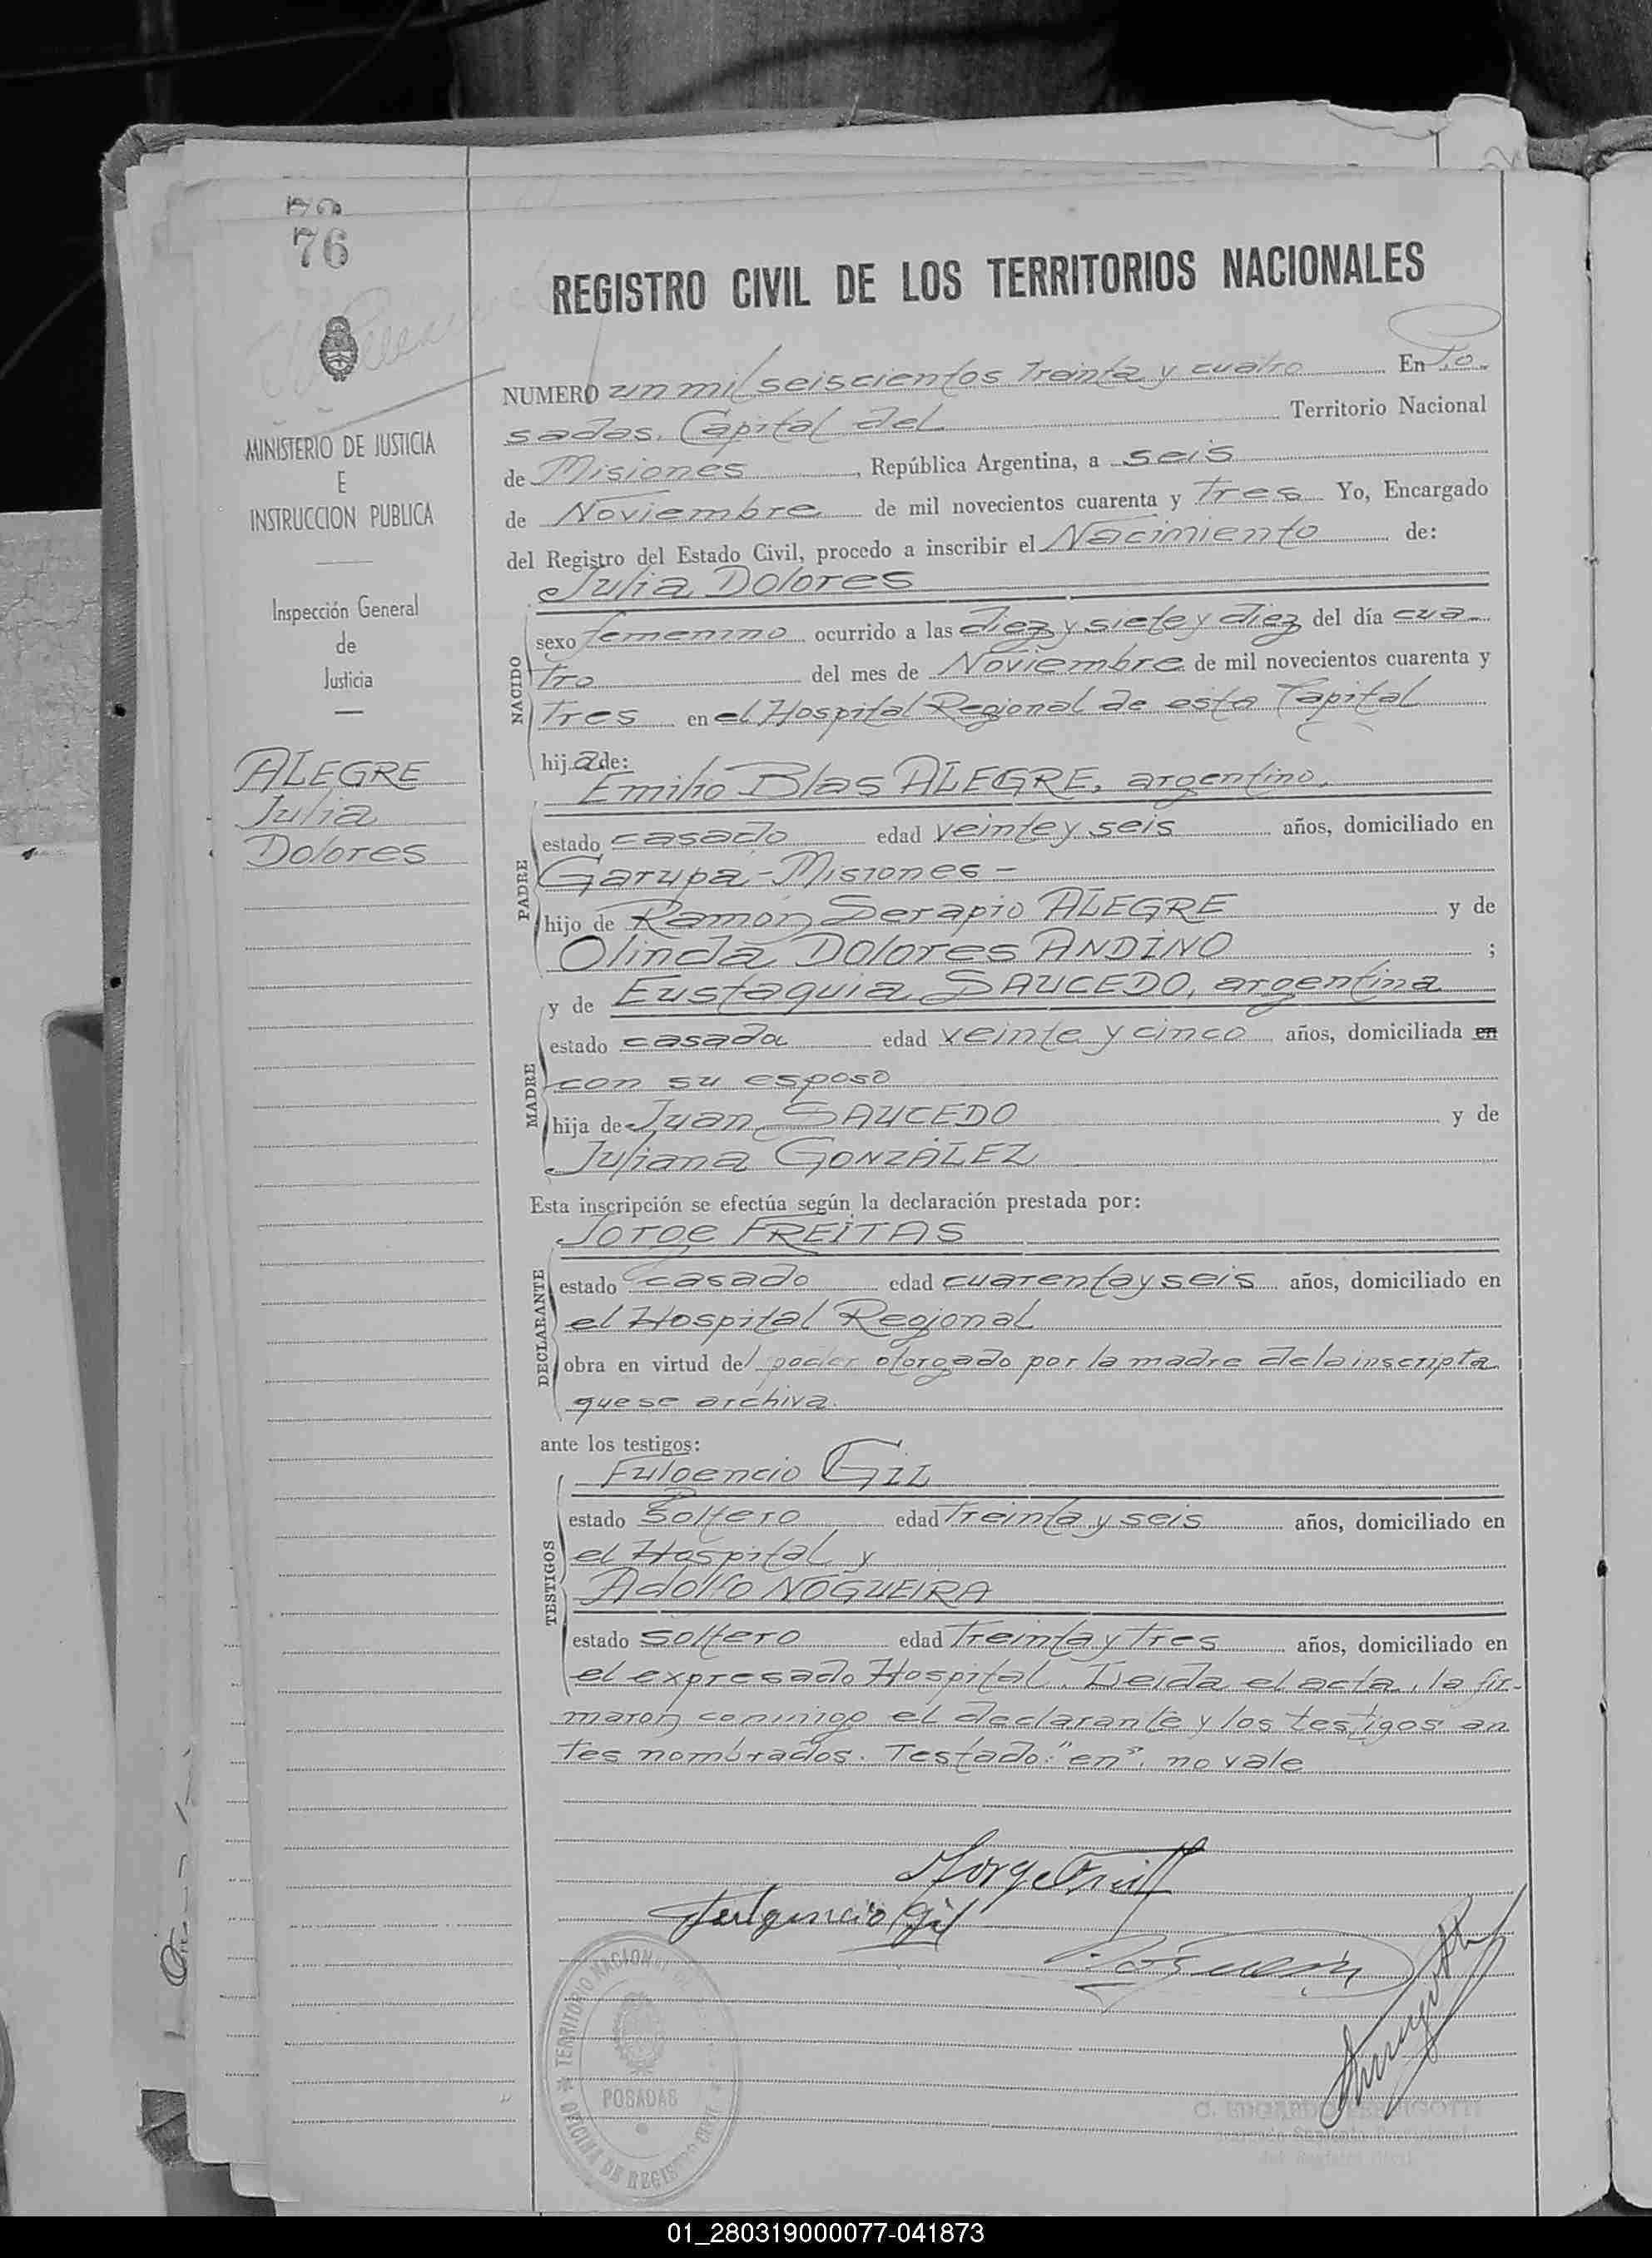 76
REGISTRO CIVIL DE LOS TERRITORIOS NACIONALES
MINISTERIO DE JUSTICIA
E
INSTRUCCION PUBLICA
Inspección General
de
Justicia
ALEGRE
Julia
Dolores
NUMERO un mil seiscientos treinta y cuatro En Po-
sadas, Capital del Territorio Nacional
de Misiones, República Argentina, a seis
de Noviembre de mil novecientos cuarenta y tres Yo, Encargado
del Registro del Estado Civil, procedo a inscribir el Nacimiento de:
Julia Dolores
NACIDO
sexo femenino ocurrido a las diez y siete y diez del día cua-
tro del mes de Noviembre de mil novecientos cuarenta y
tres en el Hospital Regional de esta Capital
hija de:
Emilio Blas ALEGRE, argentino,
PADRE
estado casado edad veinte y seis años, domiciliado en
Garupa - Misiones -
hijo de Ramón Serapio ALEGRE y de
Olinda Dolores ANDINO ;
y de Eustaquia SAUCEDO, argentina
MADRE
estado casada edad veinte y cinco años, domiciliada en
con su esposo
hija de Juan SAUCEDO y de
Juliana GONZÁLEZ
Esta inscripción se efectúa según la declaración prestada por:
Jorge FREITAS
DECLARANTE
estado casado edad cuarenta y seis años, domiciliado en
el Hospital Regional
obra en virtud del poder otorgado por la madre de la inscripta
que se archiva.
ante los testigos:
Fulgencio GIL
TESTIGOS
estado soltero edad treinta y seis años, domiciliado en
el Hospital y
Adolfo NOGUEIRA
estado soltero edad treinta y tres años, domiciliado en
el expresado Hospital. Leida el acta, la fir-
maron conmigo el declarante y los testigos an
tes nombrados. Testado: "en". no vale
Jorge Freit
Fulgencio Gil
TERRITORIO NACIONAL
POSADAS
OFICINA DE REGISTRO CIVIL
01_280319000077-041873